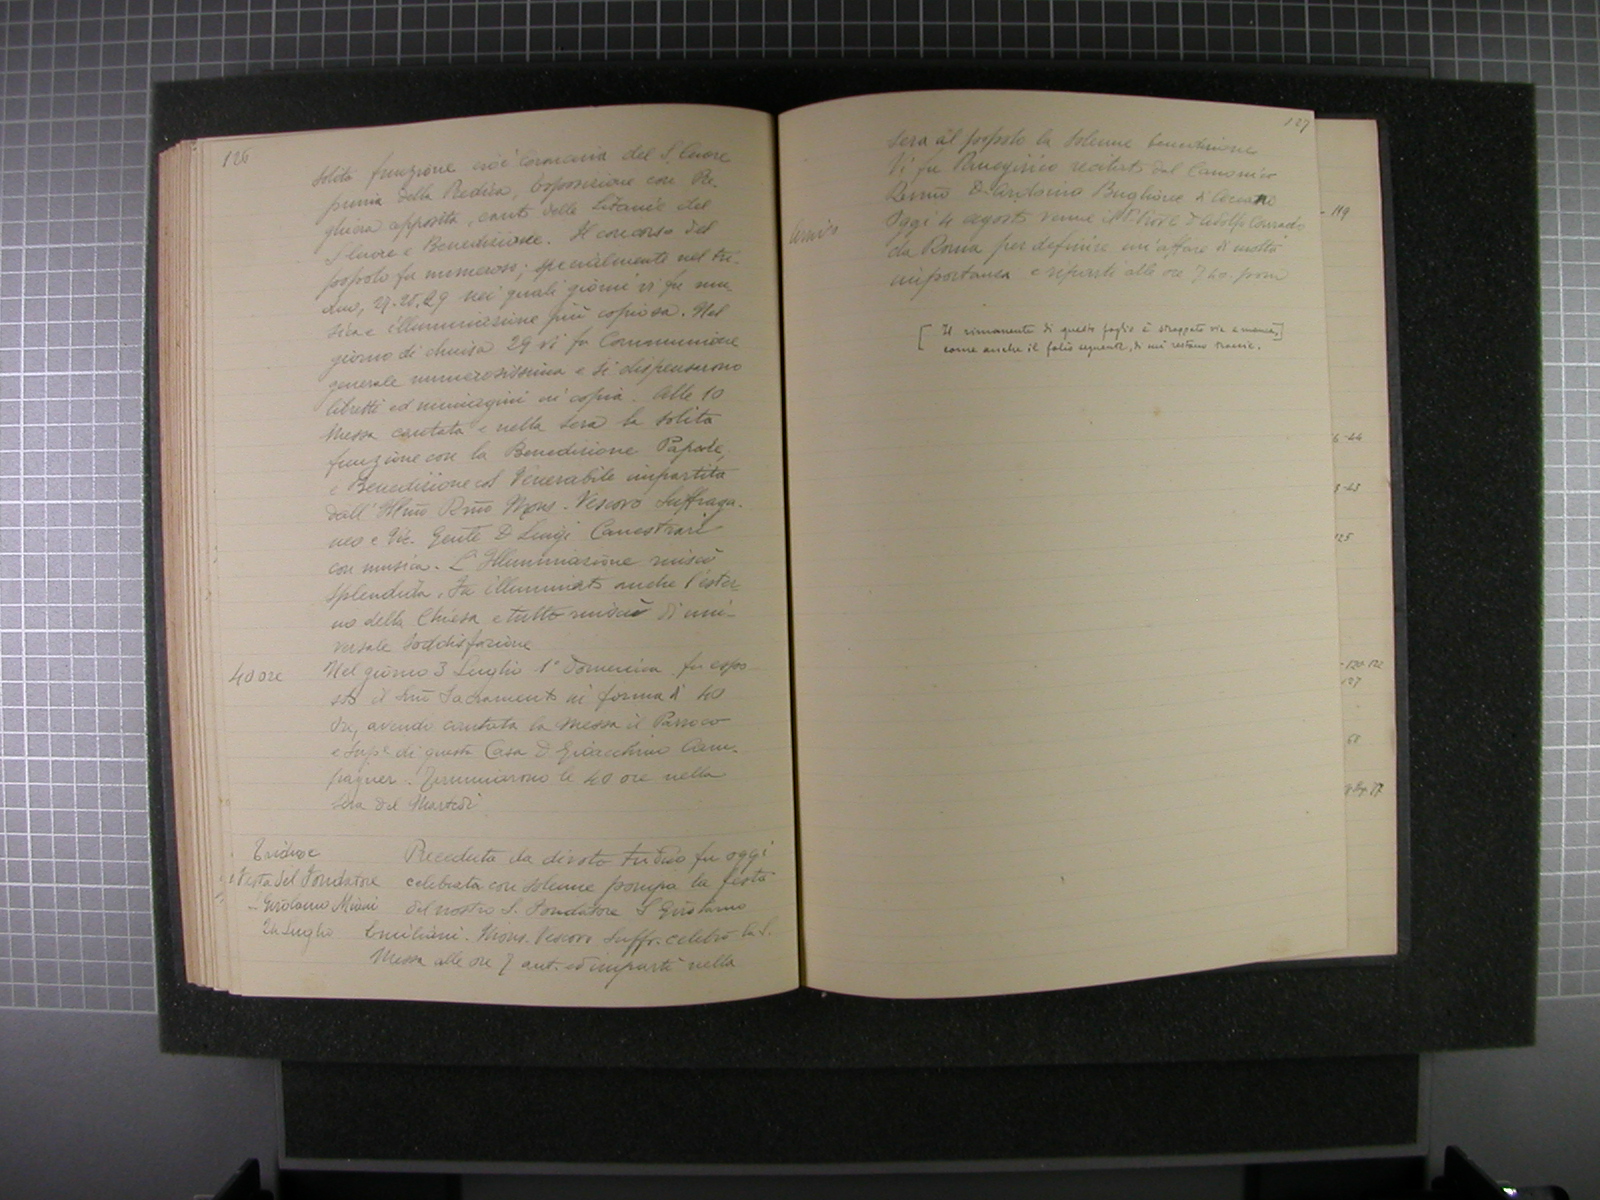 126
solita funzione cioè Coroncina del S. Cuore
prima della Predica, Esposizione con Pre-
ghiera apposita, canto delle Litanie del
S. Cuore e Benedizione. Il concorso del
popolo fu numeroso; specialmente nel tri-
duo, 27. 28. 29 nei quali giorni vi fu mu-
sica e illuminazione più copiosa. Nel
giorno di chiusa 29 vi fu Communione
generale numerosissima e si dispensarono
libretti ed immagini in copia. Alle 10
Messa cantata e nella sera la solita
funzione con la Benedizione Papale,
e Benedizione col Venerabile impartita
dall' Illmo Rmo Mons. Vescovo Suffraga-
neo e Vic. Gente D Luigi Canestrari
con musica. L'Illuminazione riuscì
splendida. Fu illuminato anche l'ester-
no della Chiesa e tutto riuscì di uni-
versale soddisfazione
40 ore
Nel giorno 3 Luglio 1a Domenica fu espo-
sto il SSmo Sacramento in forma di 40
Ore, avendo cantata la Messa il Parroco
e Supe di questa Casa D. Gioacchino Cam-
pagner. Terminarono le 40 ore nella
sera del Martedì
Triduo e
Festa del Fondatore
S Girolamo Miani
20 Luglio
Preceduta da divoto triduo fu oggi
celebrata con solenne pompa la festa
del nostro S. Fondatore S Girolamo
Emiliani. Mons. Vescovo Suffr. celebrò la S.
Messa alle ore 7 ant. ed impartì nella
127
sera al popolo la solenne benedizione
Vi fu Panegirico recitato dal Canonico
Remo D. Buglione di
Arrivo
Oggi 4 agosto venne il M R P D Adolfo Conrado
da Roma per definire un'affare di molta
importanza e ripartì alle ore 7 40 pom
[Il rimanente di questo foglio è strappato via a mano,]
come anche il folio seguente, di cui restano tracce.
- 119
6-44
3-43
125
-120-122
127
68